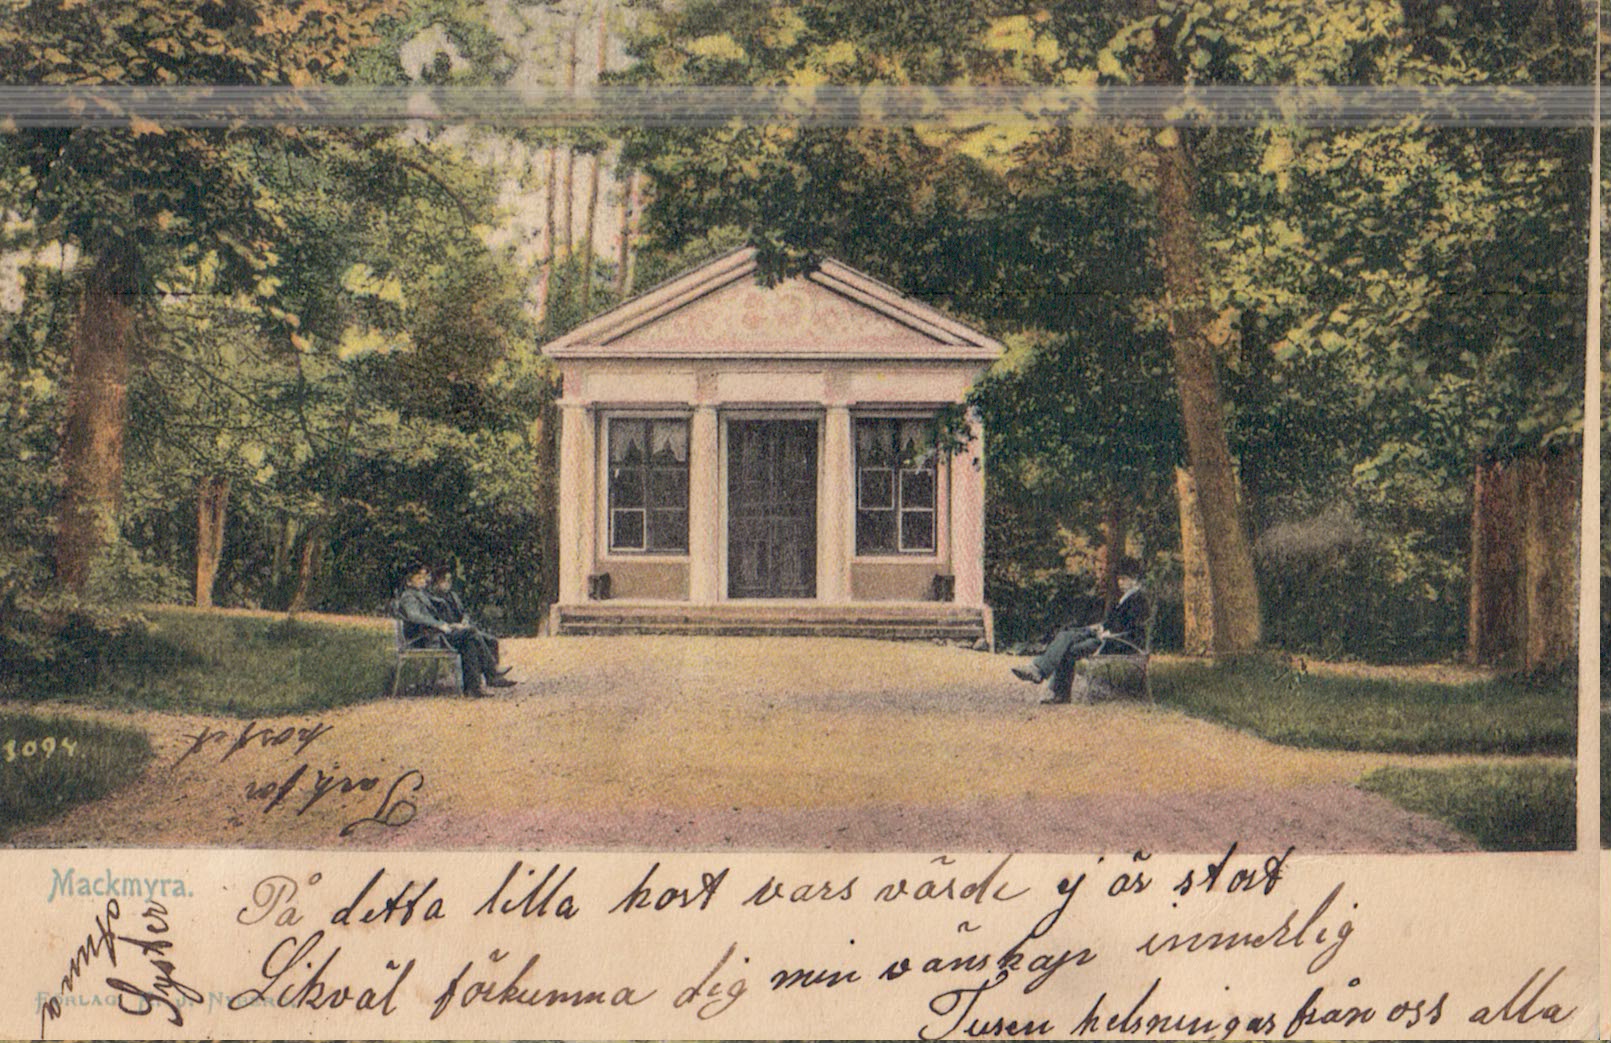 3094
Tack för
kortet
Mackmyra.
På detta lilla kort vars värde ej är stort
Likväl förkunna dig min vänskap innerlig
Tusen helsningar från oss alla
Syster
FÖRLAG